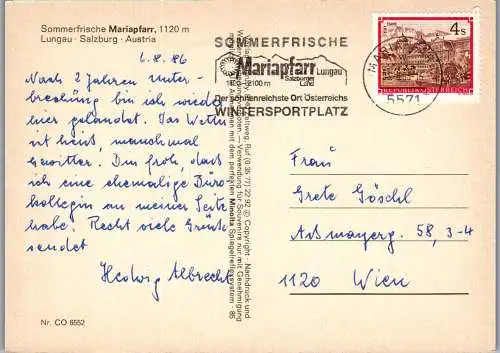 Sommerfrische Mariapfarr, 1120 m
Lungau · Salzburg · Austria
6.8.86
Nach 2 Jahren Unter-
brechung bin ich wieder
hier gelandet. Das Wetter
ist heiß, manchmal
Gewitter. Bin froh, daß
ich eine ehemalige Büro
kollegin an meiner Seite
habe. Recht viele Grüße
sendet
Hedwig Albrecht
Nr. CO 6552
SOMMERFRISCHE
Mariapfarr Lungau
Salzburger
Land
2100 m
Der sonnenreichste Ort Österreichs
WINTERSPORTPLATZ
4 S
REPUBLIK ÖSTERREICH
5571
Frau
Grete Göschl
Aßmayerg. 58, 3-4
1120 Wien
© Copyright - Nachdruck und
Verwendung für Souvenirs nur mit Genehmigung
mit dem perfekten Minolta Spiegelreflexsystem - 86